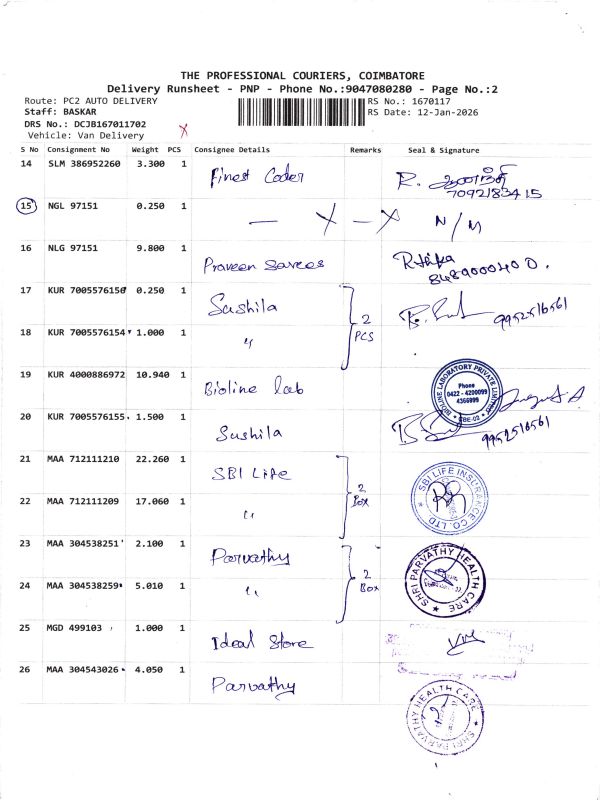 THE PROFESSIONAL COURIERS, COIMBATORE
Delivery Runsheet - PNP - Phone No.:9047080280 - Page No.:2
Route: PC2 AUTO DELIVERY
Staff: BASKAR
DRS No.: DCJB167011702
Vehicle: Van Delivery
RS No.: 1670117
RS Date: 12-Jan-2026
S No Consignment No Weight PCS Consignee Details Remarks Seal & Signature
14 SLM 386952260 3.300 1 Finest Coder R.
7092183415
15 NGL 97151 0.250 1 — X – X N/M
16 NLG 97151 9.800 1 Praveen Sarees
8489000400.
17 KUR 7005576150 0.250 1 Sushila 2 PCS 9952516561
18 KUR 7005576154 1.000 1 "
19 KUR 4000886972 10.940 1 Bioline lab
BIOLINE LABORATORY PRIVATE LIMITED
Phone
0422 - 4200099
4366999
CBE-02
20 KUR 7005576155 1.500 1 Sushila 9952516561
21 MAA 712111210 22.260 1 SBI Life 2 Box
SBI LIFE INSURANCE CO. LTD.
22 MAA 712111209 17.060 1 "
23 MAA 304538251 2.100 1 Parvathy 2 Box
SHRI PARVATHY HEALTH CARE
24 MAA 304538259 5.010 1 "
25 MGD 499103 1.000 1 Ideal Store
26 MAA 304543026 4.050 1 Parvathy
SHRI PARVATHY HEALTH CARE